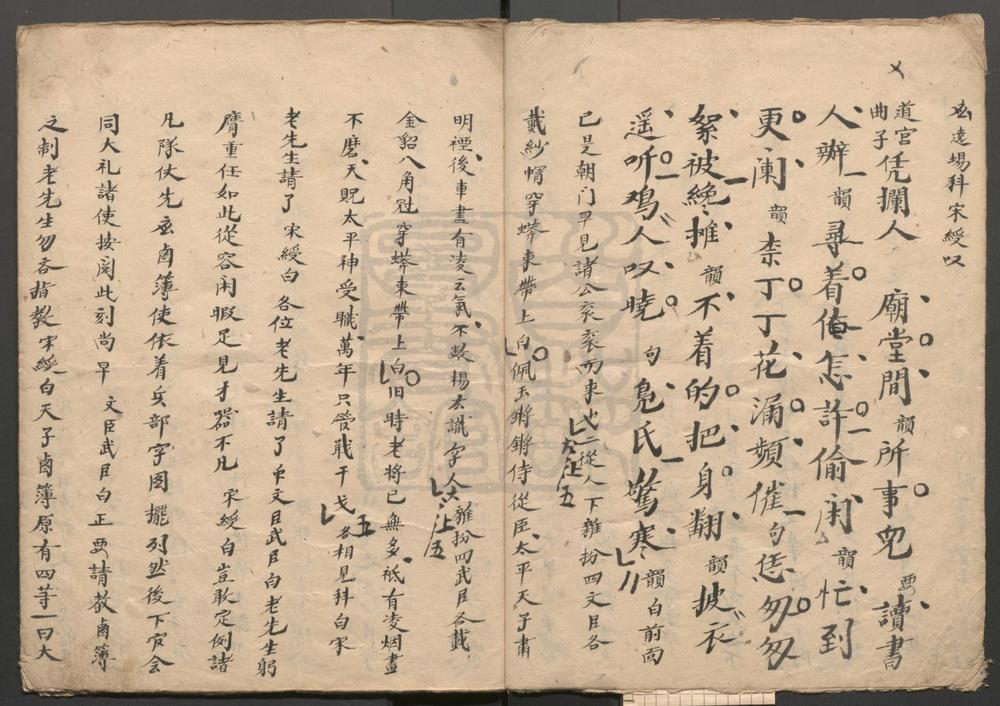 玄遶場科宋綬叹
道宮曲子凭攔人 廟堂間韻所事兜 要讀書
人辦韻尋着俺怎許偷闲韻忙到
更闌韻柰丁丁花漏頻催句恁匆匆
絮被絻攡韻不着的把身翻韻披衣
遥听鳮人叹曉句鳬氏驚寒韻白前面
已是朝门早見諸公衮衮而来也二從人下雜扮四文臣各
戴紗帽穿蟒束帶上白佩玉鏘鏘侍從臣太平天子肅
明禋後車盡有凌云氣不数楊䧺識字人雜扮四武臣各戴
金貂八角冠穿蟒束帶上白旧時老將已無多祗有凌烟畫
不磨天貺太平神受職萬年只管戢干戈各相見科白宋
老先生請了宋綬白各位老先生請了衆文臣武臣白老先生躬
膺重任如此從容闲暇足見才器不凡宋綬白豈敢定例諸
凡隊仗先玄鹵簿使依着兵部字图擺列然後下官会
同大礼諸使按閱此刻尚早文臣武臣白正要請教鹵簿
之制老先生勿吝指教宋綬白天子鹵簿原有四等一曰大